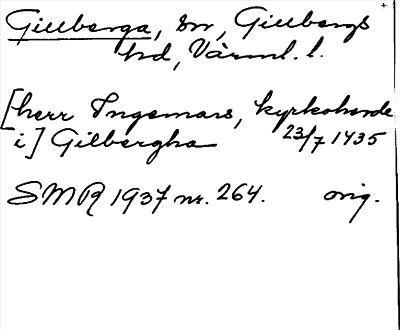 Gillberga, sn, Gillbergs
hd, Värml. l.
[herr Ingemars, kyrkoherde
i] Gilbergha 23/7 1435
SMR 1937 nr. 264. orig.